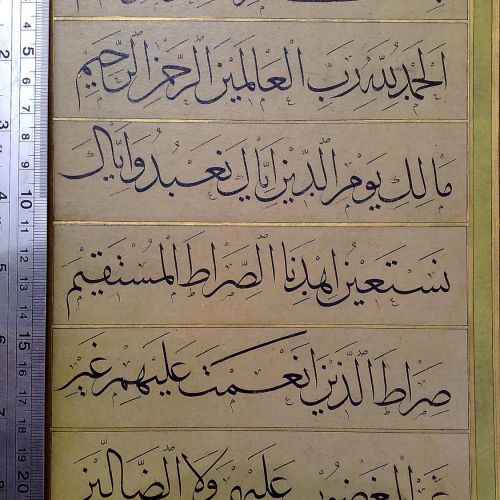 اَلْحَمْدُ لِلّٰهِ رَبِّ الْعَالَمِينَ الرَّحْمٰنِ الرَّحِيمِ
مَالِكِ يَوْمِ الدِّينِ اِيَّاكَ نَعْبُدُ وَاِيَّاكَ
نَسْتَعِينُ اِهْدِنَا الصِّرَاطَ الْمُسْتَقِيمَ
صِرَاطَ الَّذِينَ اَنْعَمْتَ عَلَيْهِمْ غَيْرِ
الْمَغْضُوبِ عَلَيْهِمْ وَلَا الضَّالِّينَ
2 3 4 5 6 7 8
4 5 6 7 8 9 10 11 12 13 14 15 16 17 18 19 20